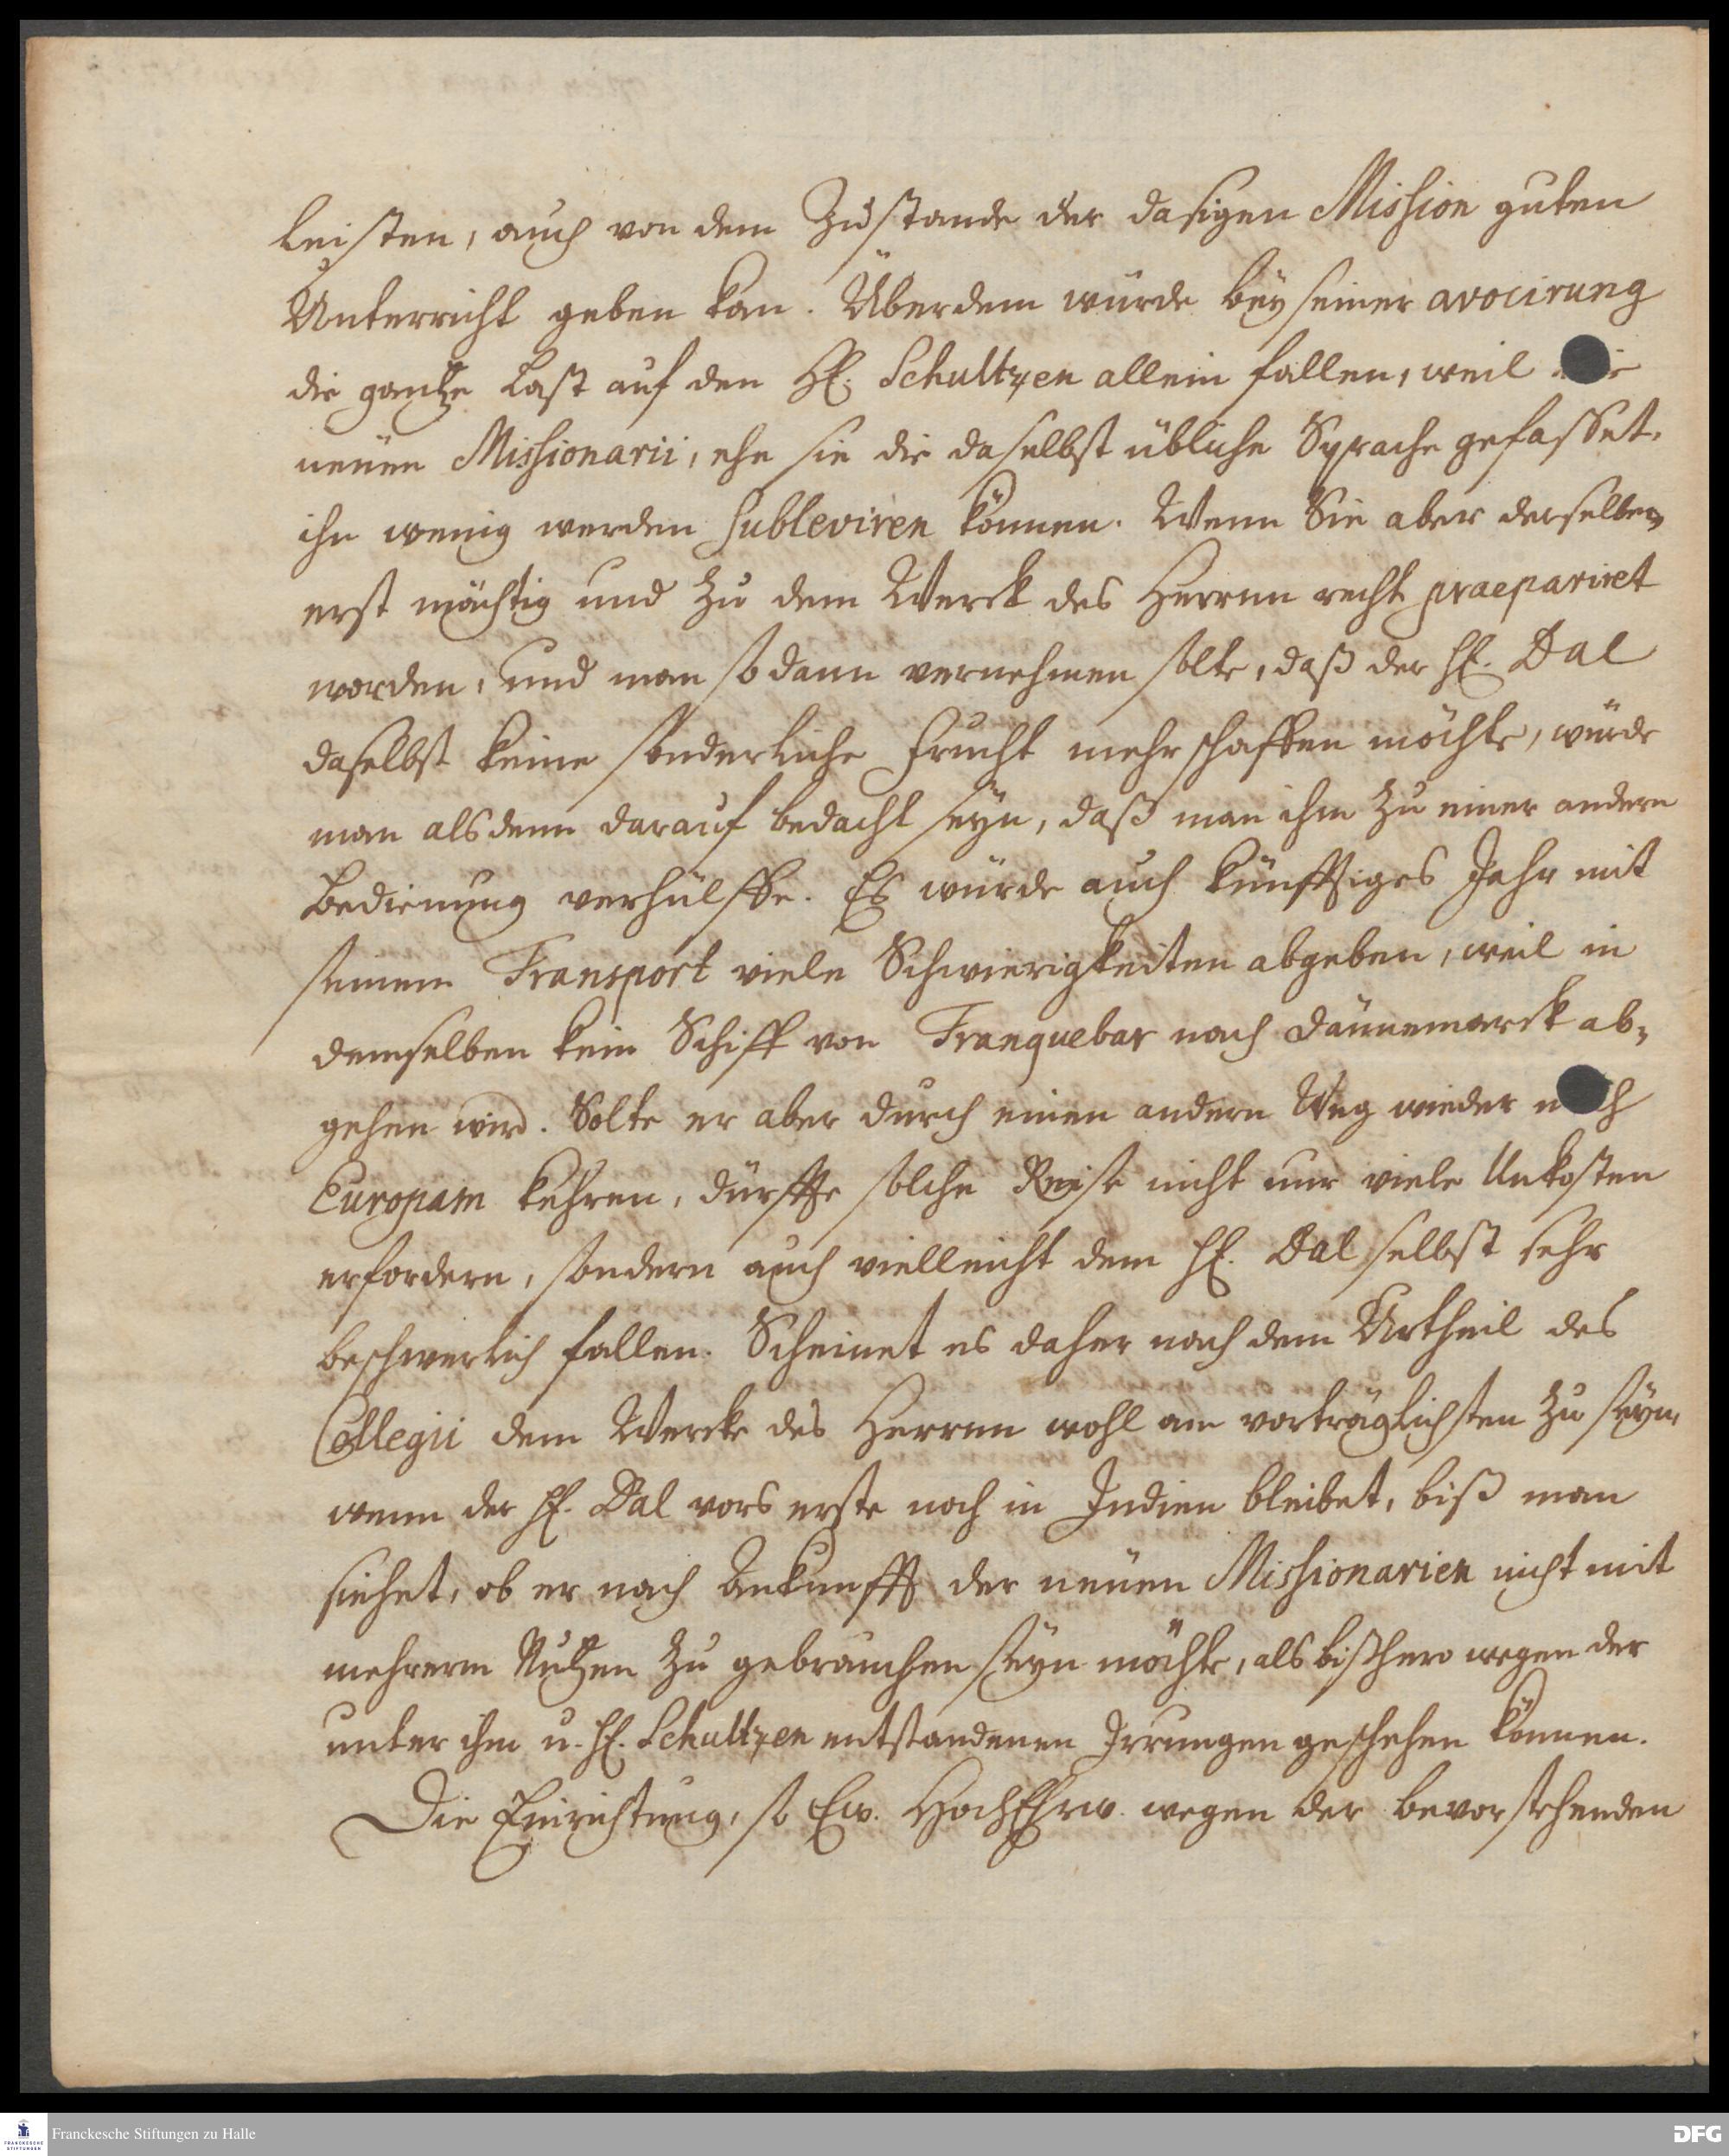 leisten, auch von dem Zustande der dasigen Mission guten
Unterricht geben kan. Überdem würde bey seiner avocirung
die gantze Last auf den H. Schultzen allein fallen, weil die
neüen Missionarii, ehe sie die daselbst übliche Sprache gefasset,
ihn wenig werden subleviren können. Wenn Sie aber derselben
erst mächtig und zu dem Werck des Herrn recht praepariret
worden, und man sodann vernehmen solte, daß der H. Dal
daselbst keine sonderliche Frucht mehr schaffen möchte, würde
man alsdenn darauf bedacht seyn, daß man ihm zu einer andern
Bedienung verhülffe. Es würde auch künfftiges Jahr mit
seinem Transport viele Schwierigkeiten abgeben, weil in
demselben kein Schiff von Tranquebar nach Dännemarck ab-
gehen wird. Solte er aber durch einen andern Weg wieder nach
Europam kehren, dürffte solche Reise nicht nur viele Unkosten
erfordern, sondern auch vielleicht dem H. Dal selbst sehr
beschwerlich fallen. Scheinet es daher nach dem Urtheil des
Collegii dem Wercke des Herrn wohl am vorträglichsten zu seyn,
wenn der H. Dal vors erste noch in Indien bleibet, biß man
siehet, ob er nach Ankunfft der neüen Missionarien nicht mit
mehrerm Nutzen zu gebrauchen seyn möchte, als bißhero wegen der
unter ihm u. H. Schultzen entstandenen Irrungen geschehen können.
Die Einrichtung, so Ew. HochEhrw. wegen der bevorstehenden
FRANCKESCHE STIFTUNGEN
Franckesche Stiftungen zu Halle
DFG